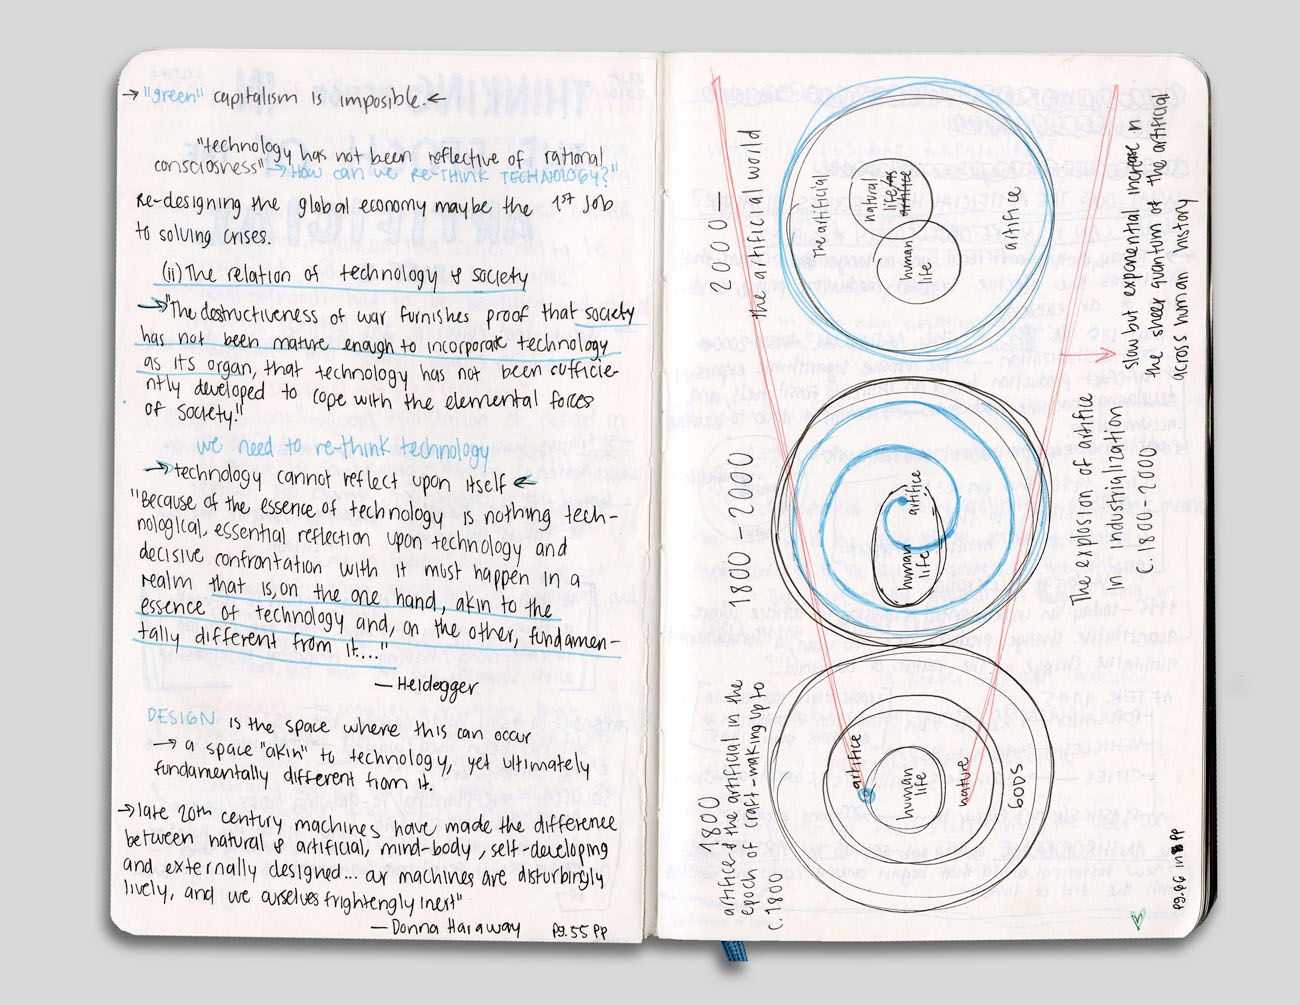 → "green" capitalism is imposible. ←
"technology has not been reflective of rational
consciousness" → HOW can we RE-THINK TECHNOLOGY?"
Re-designing the global economy maybe the 1st Job
to solving crises.
(ii) The relation of technology & society
→ "The destructiveness of war furnishes proof that society
has not been mature enough to incorporate technology
as its organ, that technology has not been sufficie-
ntly developed to cope with the elemental forces
of society."
we need to re-think technology
→ technology cannot reflect upon itself ←
"Because of the essence of technology is nothing tech-
nological, essential reflection upon technology and
decisive confrontation with it must happen in a
realm that is, on the one hand, akin to the
essence of technology and, on the other, fundamen-
tally different from it...."
— Heidegger
DESIGN is the space where this can occur
→ a space "akin" to technology, yet ultimately
fundamentally different from it.
→ late 20th century machines have made the difference
between natural & artificial, mind-body, self-developing
and externally designed... our machines are disturbingly
lively, and we ourselves frightengly inert"
— Donna Haraway pg. 55 PP
2000 —
the artificial world
The artificial
natural
life as
artifice
human
life
artifice
slow but exponential increase in
the sheer quantum of the artificial
across human history
1800 — 2000
artifice
human
life
The explosion of artifice
in industrialization
c. 1800 - 2000
1800
artifice & the artificial in the
epoch of craft-making up to
c. 1800
artifice
human
life
nature
gods
pg. 96 in PP